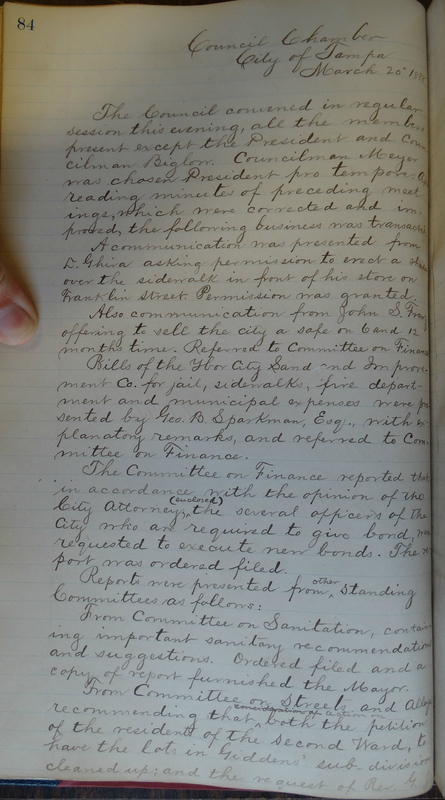 84
Council Chamber
City of Tampa
March 20" 18
The Council convened in regular
session this evening, all the members
present except the President and Coun
cilman Biglow. Councilman Meyer
was chosen President pro tempore.
reading minutes of preceding meet
ings, which were corrected and im-
proved, the following business was transacted
A communication was presented from
L. Ghira asking permission to erect a
over the sidewalk in front of his store on
Franklin Street. Permission was granted.
Also communication from John S.
offering to sell the city a safe on 6 and 12
months time. Referred to Committee on Finance
Bills of the Ybor City Land and Improve-
ment Co. for jail, sidewalks, fire depart-
ment and municipal expenses were pre
sented by Geo. B. Sparkman, Esq., with ex
planatory remarks, and referred to Com-
mittee on Finance.
The Committee on Finance reported that
in accordance with the opinion of the
City Attorney, (enclosed) the several officers of the
City who are required to give bond,
requested to execute new bonds. The re
port was ordered filed.
Reports were presented from other Standing
Committees as follows:
From Committee on Sanitation, contain
ing important sanitary recommendations
and suggestions. Ordered filed and a
copy of report furnished the Mayor.
From Committee on Streets and Alleys
recommending that consideration of action on both the petition
of the residents of the Second Ward, to
have the lots in Giddens' sub-division
cleaned up; and the request of Rev.